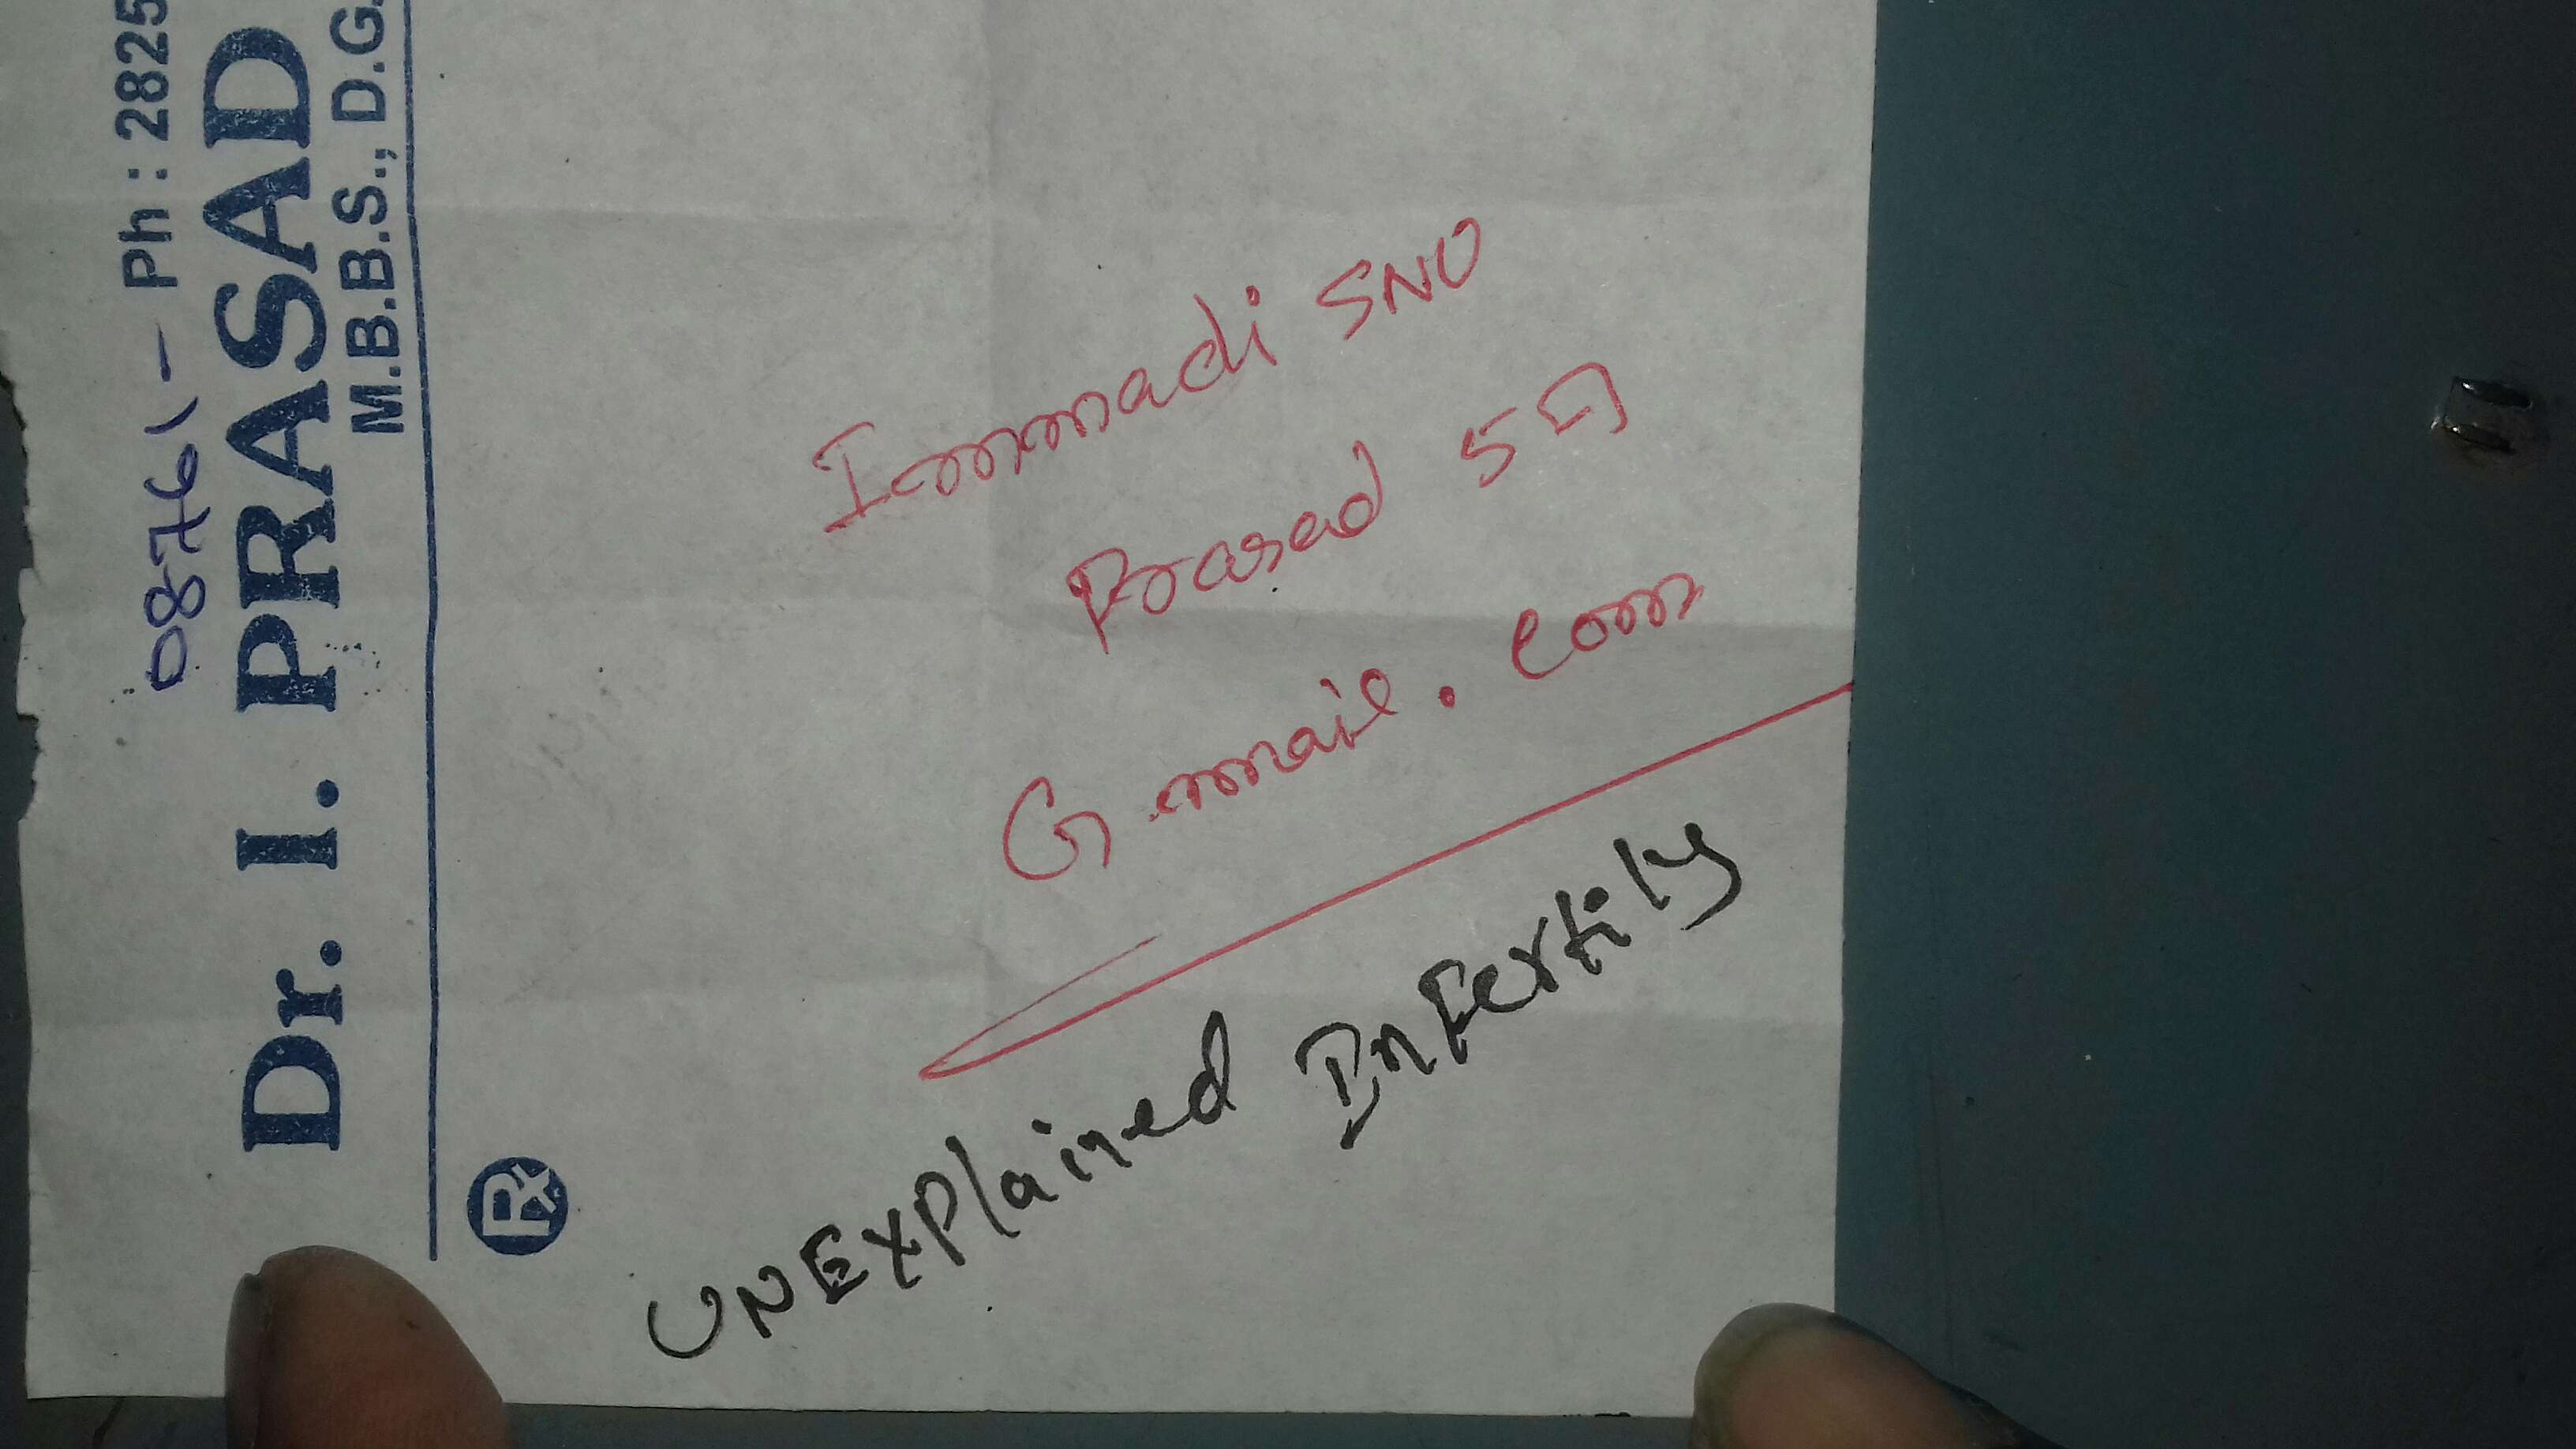 08761- Ph : 2825
Dr. I. PRASAD
M.B.B.S., D.G.
Rx
SNO
Prasad 59
Gmail.com
UNExplained Infertily